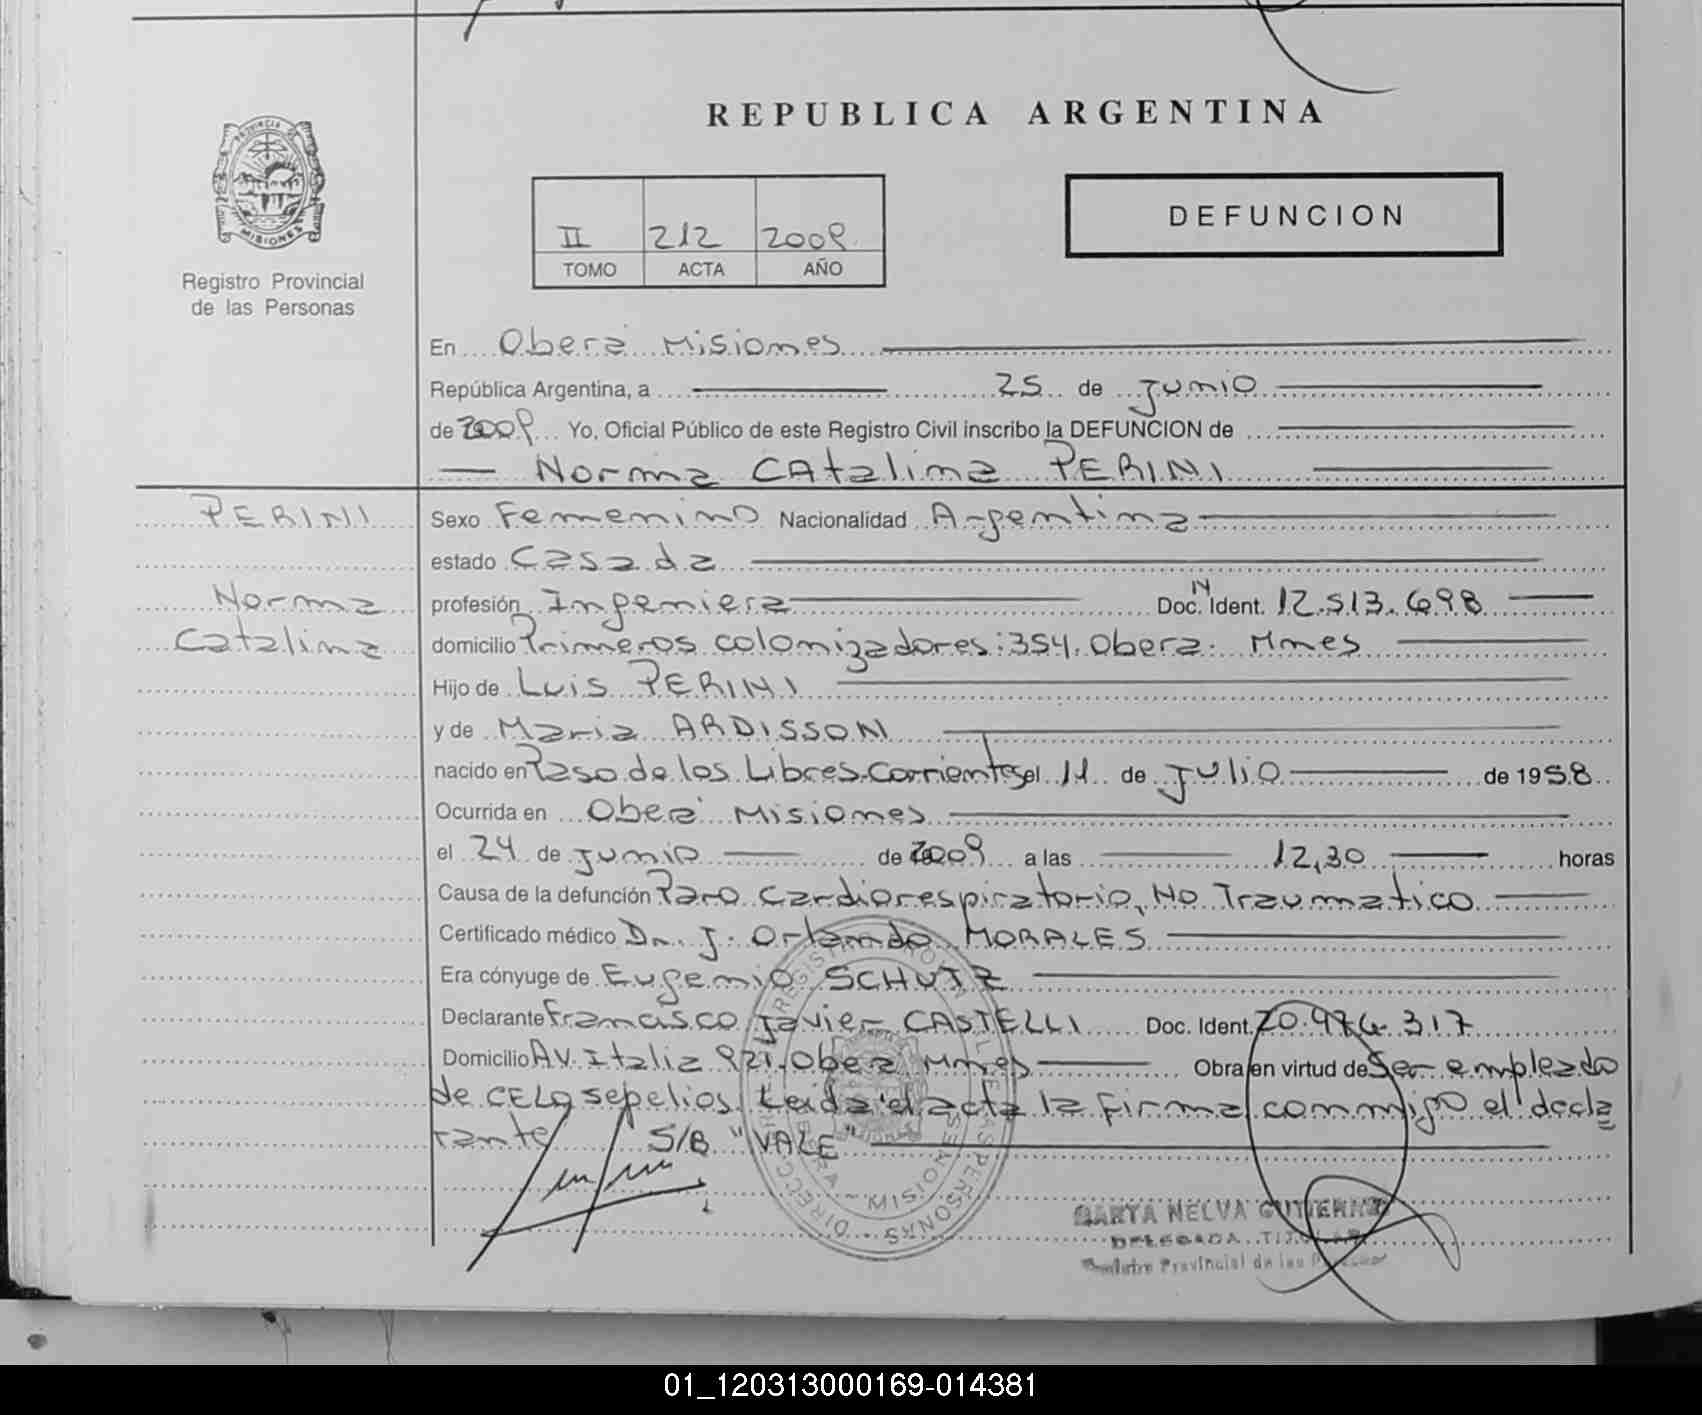 REPUBLICA ARGENTINA
PROVINCIA DE
MISIONES
Registro Provincial
de las Personas
II 212 2009
TOMO ACTA AÑO
DEFUNCION
En Oberá Misiones
República Argentina, a 25 de Junio
de 2009 Yo, Oficial Público de este Registro Civil inscribo la DEFUNCION de
Norma CAtalina PERINI
PERINI
Norma
Catalina
Sexo Femenino Nacionalidad Argentina
estado Casada
profesión Ingeniera Doc. N Ident. 12.513.698
domicilio Primeros colonizadores: 354. Obera. Mnes
Hijo de Luis PERINI
y de Maria ARDISSON
nacido en Paso de los Libres-Corrientes el 11 de Julio de 1958
Ocurrida en Oberá Misiones
el 24 de Junio de 2009 a las 12,30 horas
Causa de la defunción Paro Cardiorespiratorio, No Traumatico
Certificado médico Dr. J. Orlando MORALES
Era cónyuge de Eugenio SCHUTZ
Declarante Francisco Javier CASTELLI Doc. Ident. 20.974.317
Domicilio AV. Italia 921. Obera Mnes Obra en virtud de Ser empleado
de CELO sepelios. Leída el acta la firma conmigo el decla
rante S/B "VALE"
MISIONES
MARTA NELVA GUTIERREZ
DELEGADA TITULAR
Registro Provincial de las Personas
01_120313000169-014381